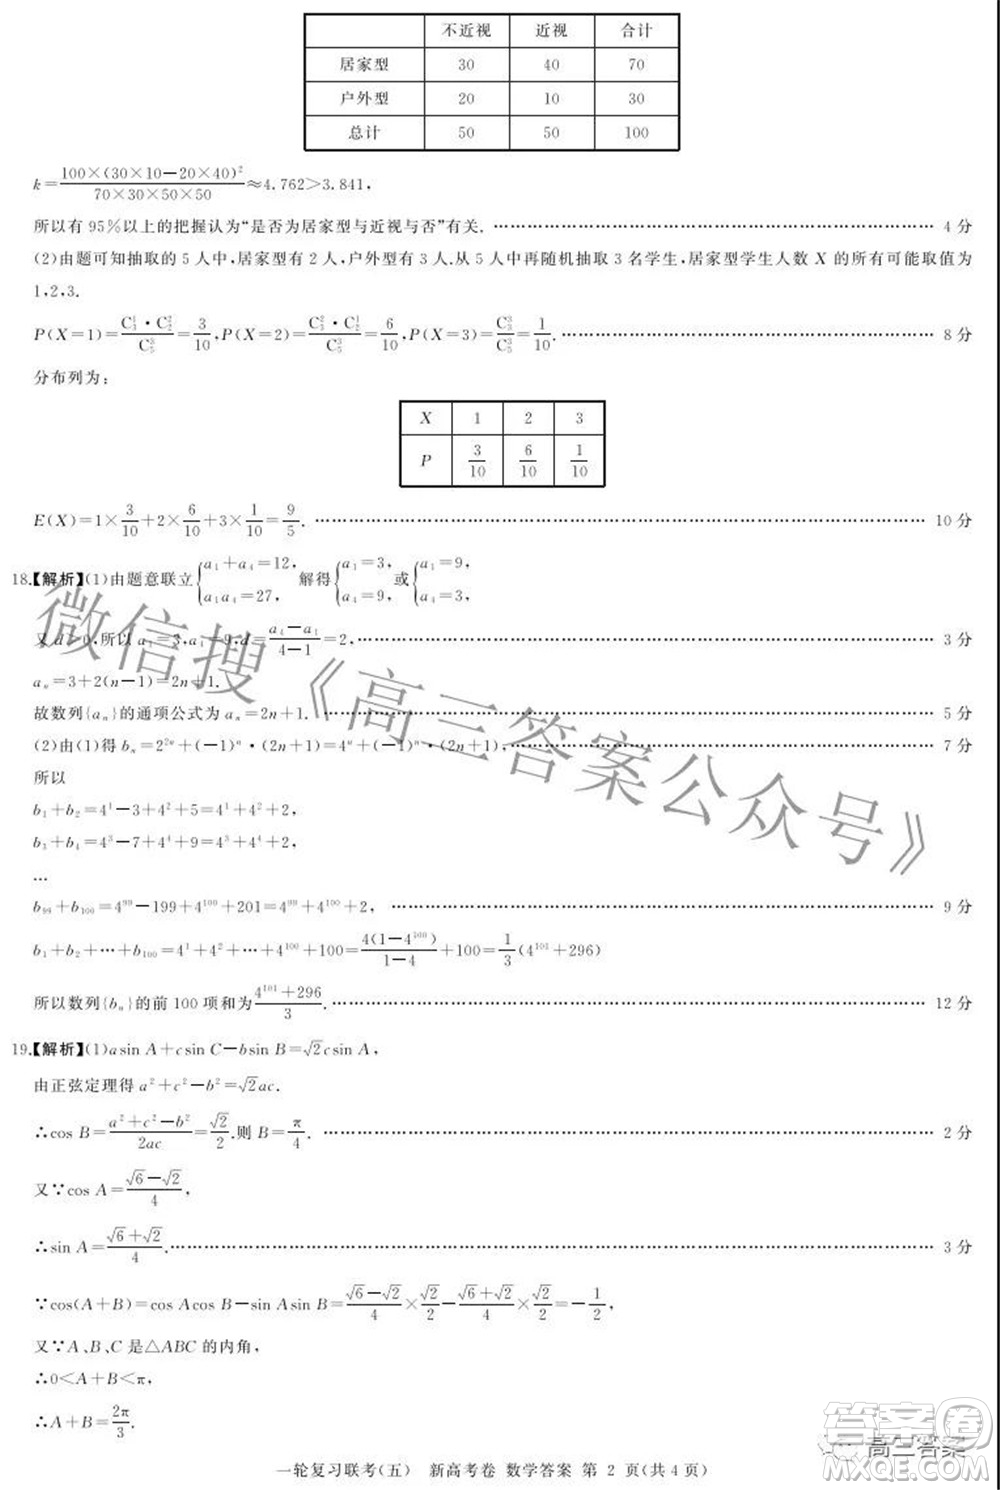 不近视 近视 合计
居家型 30 40 70
户外型 20 10 30
总计 50 50 100
k=100×(30×10−20×40)²/70×30×50×50≈4.762>3.841,
所以有 95%以上的把握认为“是否为居家型与近视与否”有关. 4 分
(2)由题可知抽取的 5 人中,居家型有 2 人,户外型有 3 人.从 5 人中再随机抽取 3 名学生,居家型学生人数 X 的所有可能取值为
1,2,3.
P(X=1)=C₃¹·C₂²/C₅³=3/10,P(X=2)=C₃²·C₂¹/C₅³=6/10,P(X=3)=C₃³/C₅³=1/10. 8 分
分布列为:
X 1 2 3
P 3/10 6/10 1/10
E(X)=1×3/10+2×6/10+3×1/10=9/5. 10 分
18.【解析】(1)由题意联立{a₁+a₄=12, a₁a₄=27, 解得{a₁=3, a₄=9, 或{a₁=9, a₄=3,
又 d>0,所以 a₁=3,a₄=9,d=a₄−a₁/4−1=2, 3 分
aₙ=3+2(n−1)=2n+1.
故数列{aₙ}的通项公式为 aₙ=2n+1. 5 分
(2)由(1)得 bₙ=2²ⁿ+(−1)ⁿ·(2n+1)=4ⁿ+(−1)ⁿ·(2n+1), 7 分
所以
b₁+b₂=4¹−3+4²+5=4¹+4²+2,
b₃+b₄=4³−7+4⁴+9=4³+4⁴+2,
…
b₉₉+b₁₀₀=4⁹⁹−199+4¹⁰⁰+201=4⁹⁹+4¹⁰⁰+2, 9 分
b₁+b₂+…+b₁₀₀=4¹+4²+…+4¹⁰⁰+100=4(1−4¹⁰⁰)/1−4+100=1/3(4¹⁰¹+296)
所以数列{bₙ}的前 100 项和为4¹⁰¹+296/3. 12 分
19.【解析】(1)asin A+csin C−bsin B=√2csin A,
由正弦定理得 a²+c²−b²=√2ac.
∴cos B=a²+c²−b²/2ac=√2/2.则 B=π/4. 2 分
又∵cos A=√6−√2/4,
∴sin A=√6+√2/4. 3 分
∵cos(A+B)=cos Acos B−sin Asin B=√6−√2/4×√2/2−√6+√2/4×√2/2=−1/2,
又∵A、B、C 是△ABC 的内角,
∴0<A+B<π,
∴A+B=2π/3.
一轮复习联考(五) 新高考卷 数学答案 第 2 页(共 4 页)
微信搜《高三答案公众号》
答案圈
高三答案